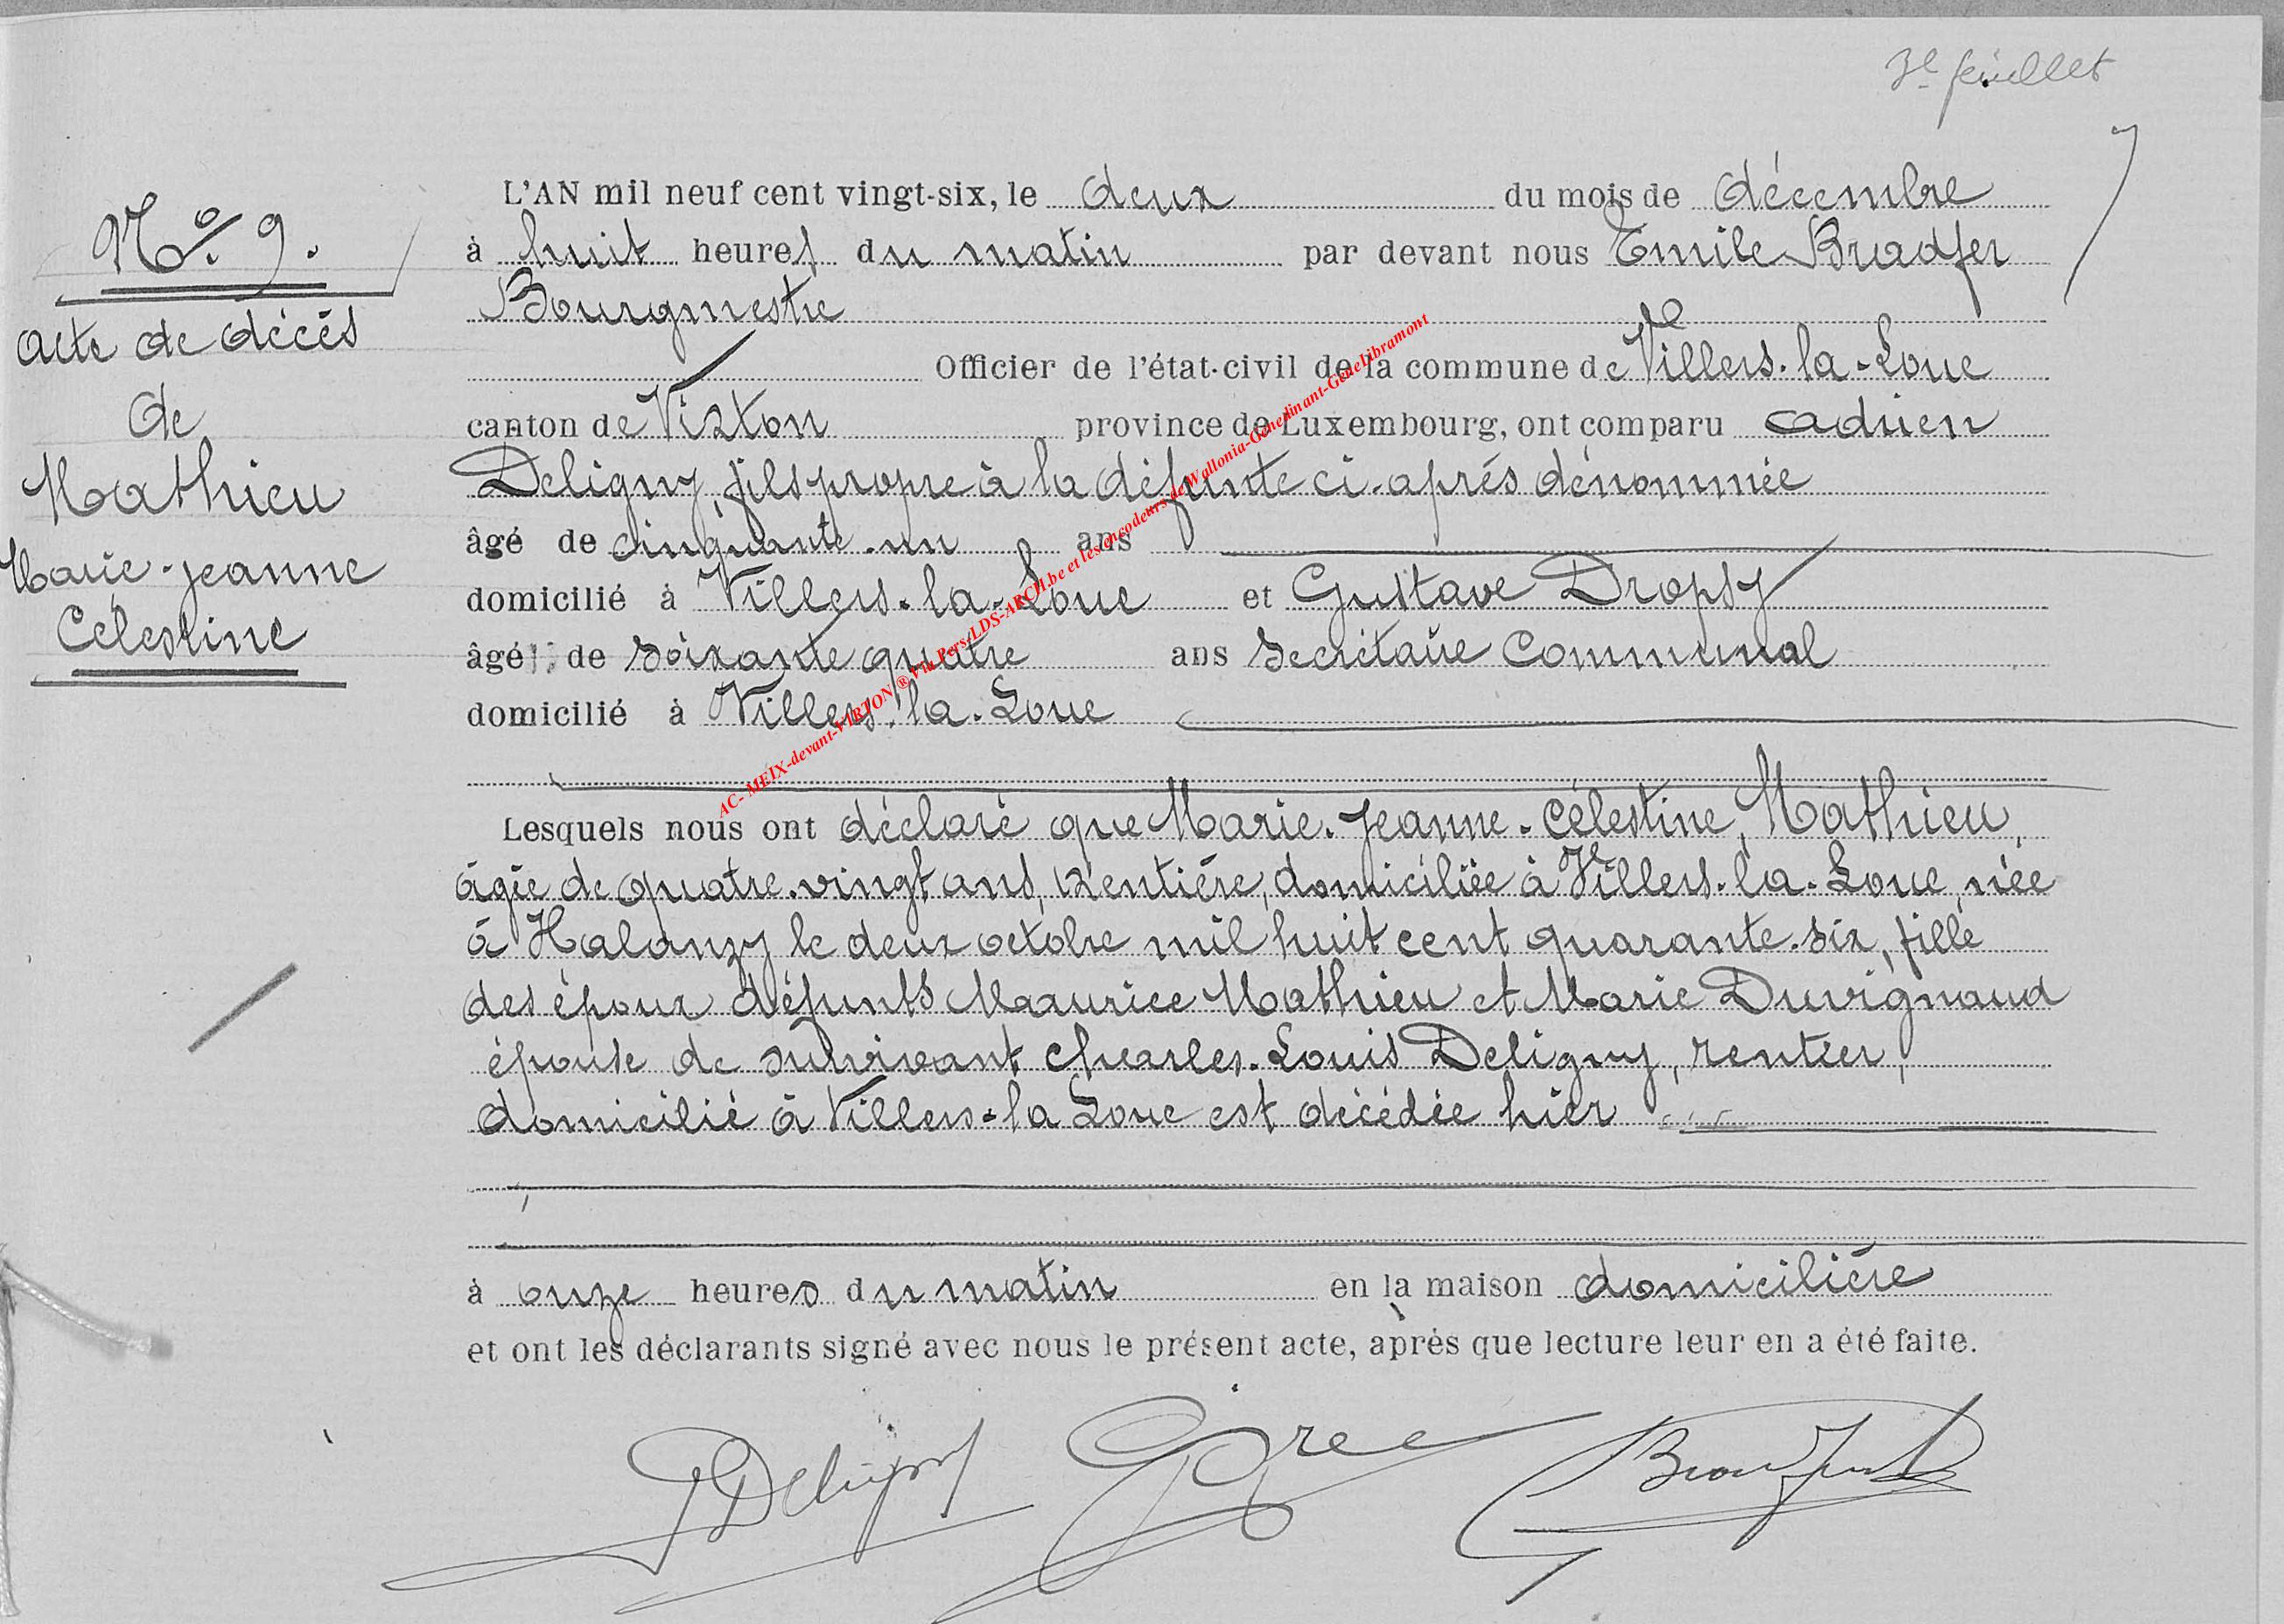 3e feuillet
No 9.
Acte de décès
de
Mathieu
Marie-Jeanne
Célestine
L'AN mil neuf cent vingt-six, le deux du mois de décembre
à huit heures du matin par devant nous Emile Bradfer
Bourgmestre
Officier de l'état-civil de la commune de Villers-la-Loue
canton de Virton province de Luxembourg, ont comparu Adrien
Deligny, fils propre à la défunte ci-après dénommée
âgé de cinquante-un ans
domicilié à Villers-la-Loue et Gustave Dropsy
âgé de soixante quatre ans secrétaire communal
domicilié à Villers-la-Loue
Lesquels nous ont déclaré que Marie-Jeanne-Célestine, Mathieu,
âgée de quatre-vingt ans, rentière, domiciliée à Villers-la-Loue, née
à Halanzy le deux octobre mil huit cent quarante-six, fille
des époux défunts Maurice Mathieu et Marie Duvignaud
épouse de survivant Charles-Louis Deligny, rentier,
domicilié à Villers-la Loue est décédée hier
à onze heures du matin en la maison domicilière
et ont les déclarants signé avec nous le présent acte, après que lecture leur en a été faite.
Deligny Bradfer
AC- MEIX-devant-VIRTON ® Via Pers-LDS-ARCH.be et les encodeurs de Wallonia-Genedinant-GeneLibramont